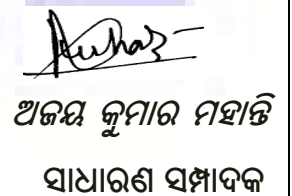 ଅଜୟ କୁମାର ମହାନ୍ତି
ସାଧାରଣ ସମ୍ପାଦକ